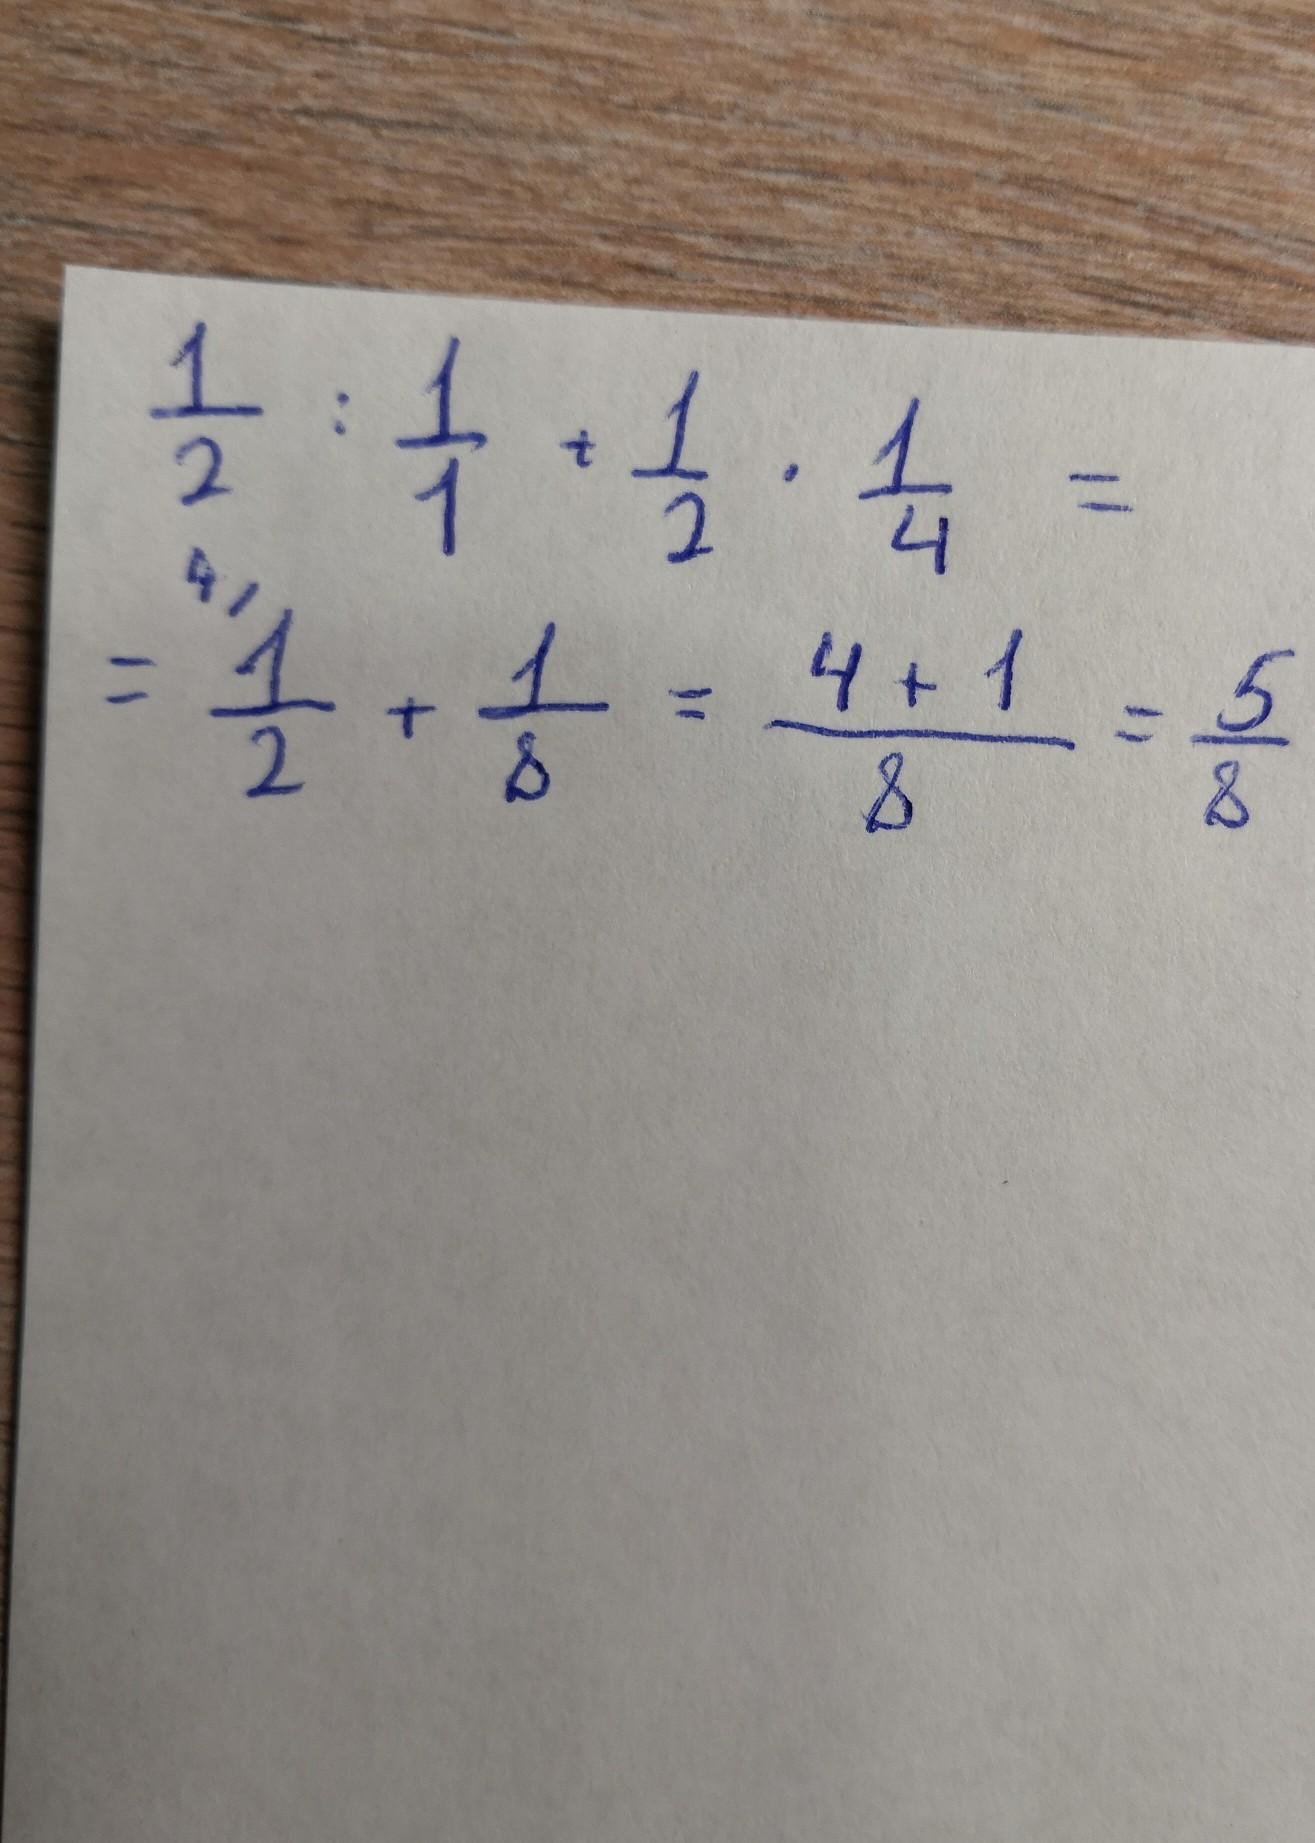 1/2 : 1/1 + 1/2 · 1/4 =
= 4/ 1/2 + 1/8 = (4 + 1)/8 = 5/8